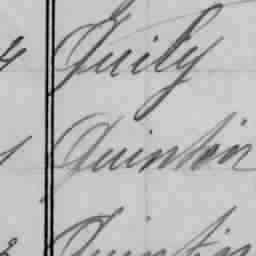 4 Quily
1 Quinton
2 Quintin